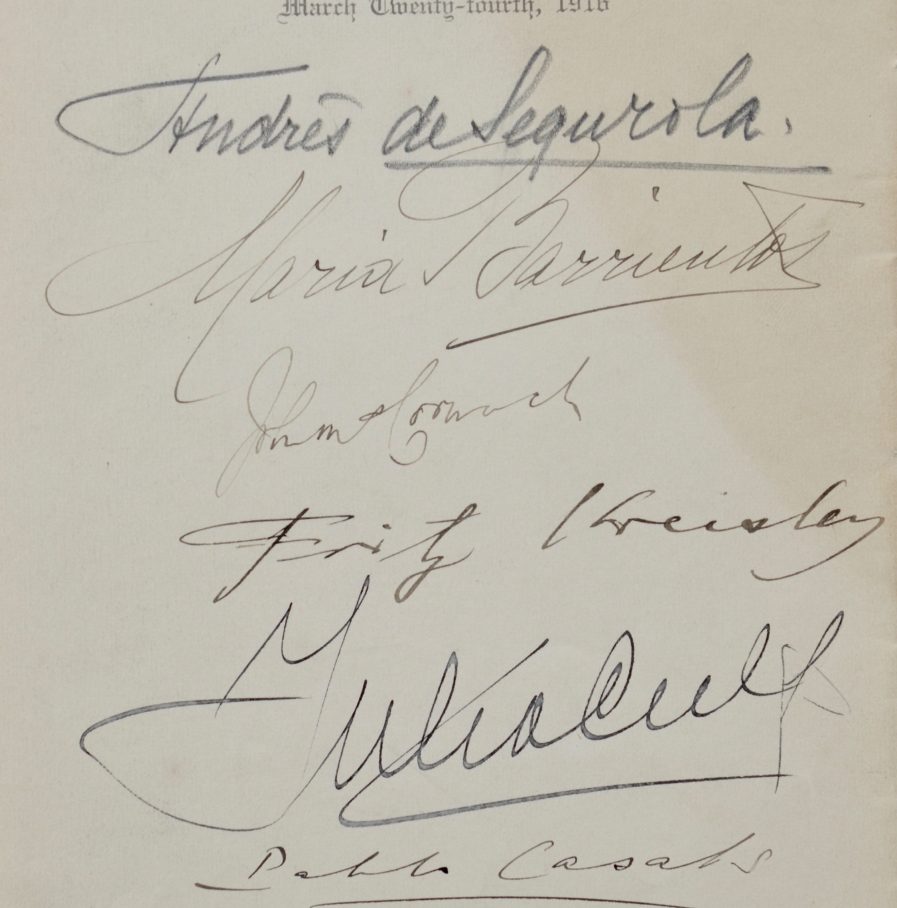 March Twenty-fourth, 1916
Andrés de Segurola.
Maria Barrientos
John McCormack
Fritz Kreisler
Julia Culp
Pablo Casals